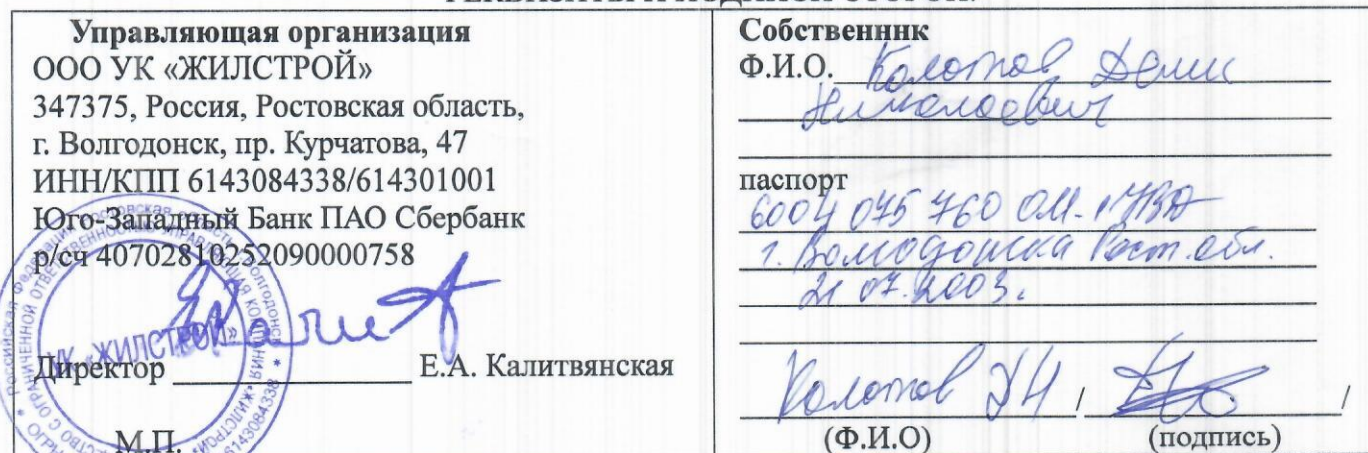 Управляющая организация
ООО УК «ЖИЛСТРОЙ»
347375, Россия, Ростовская область,
г. Волгодонск, пр. Курчатова, 47
ИНН/КПП 6143084338/614301001
Юго-Западный Банк ПАО Сбербанк
р/сч 40702810252090000758
УК «ЖИЛСТРОЙ»
Директор Е.А. Калитвянская
М.П.
Собственник
Ф.И.О. Колотов Денис
Николаевич
паспорт
6004 075 760 ОМ-1 УВД
г. Волгодонска Рост. обл.
21.07.2003.
Колотов ДН / /
(Ф.И.О) (подпись)